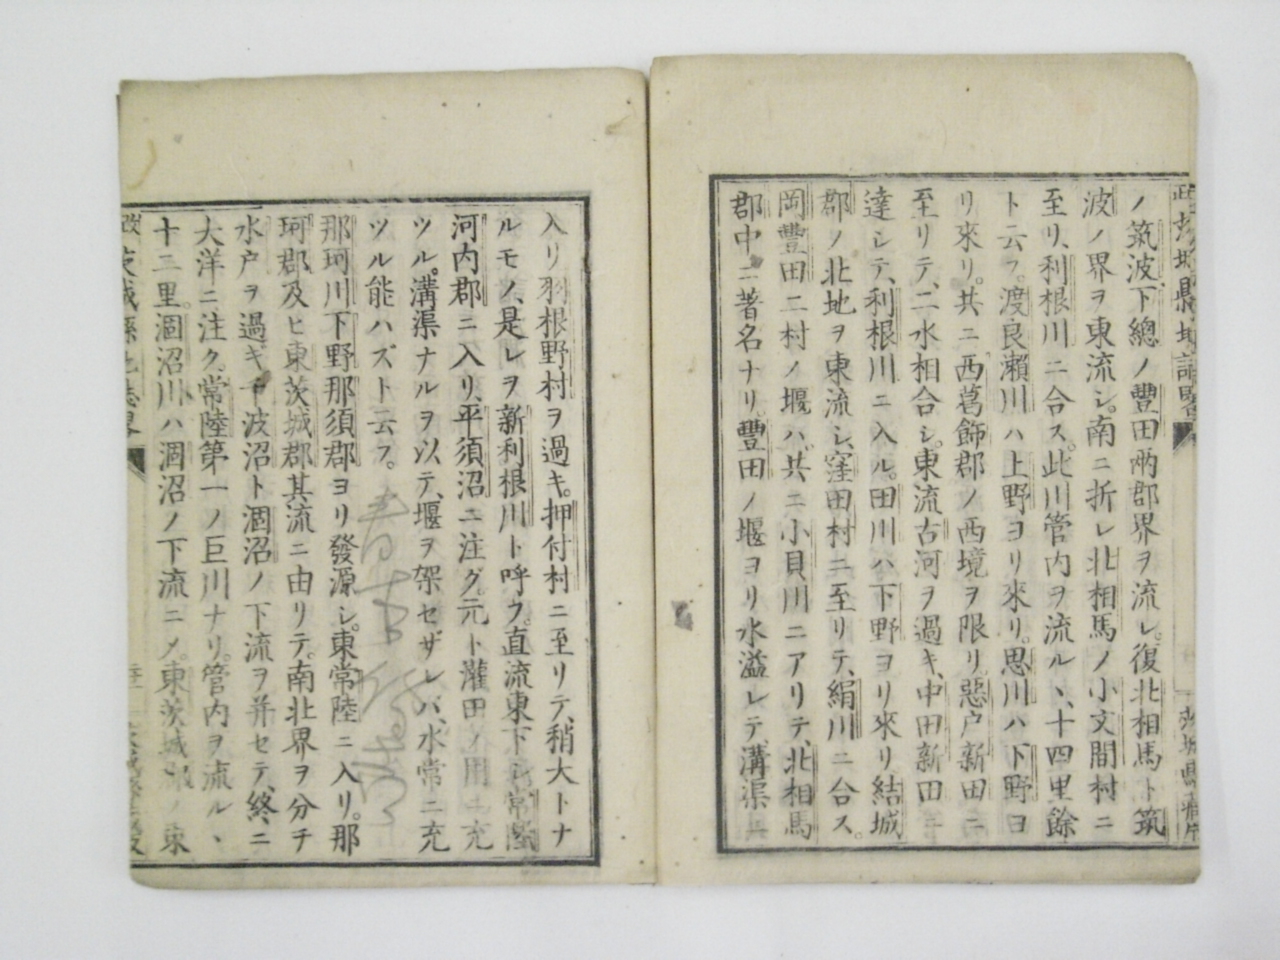 ノ筑波、下總ノ豐田兩郡界ヲ流レ。復北相馬ト筑
波ノ界ヲ東流シ。南ニ折レ北相馬ノ小文間村ニ
至リ、利根川ニ合ス。此川管内ヲ流ル、十四里餘
ト云フ。渡良瀨川ハ上野ヨリ來リ。思川ハ下野ヨ
リ來リ。共ニ西葛飾郡ノ西境ヲ限リ。惡戸新田ニ
至リテ、二水相合シ。東流古河ヲ過キ、中田新田ニ
達シテ、利根川ニ入ル。田川ハ下野ヨリ來リ結城
郡ノ北地ヲ東流シ、窪田村ニ至リテ、絹川ニ合ス。
岡豐田二村ノ堰ハ、共ニ小貝川ニアリテ、北相馬
郡中ニ著名ナリ。豐田ノ堰ヨリ水溢レテ、溝渠ニ
入リ羽根野村ヲ過キ。押付村ニ至リテ、稍大トナ
ルモノ、是レヲ新利根川ト呼フ。直流東下シ常陸
河内郡ニ入リ、平須沼ニ注グ。元ト灌田ノ用ニ充
ツル。溝渠ナルヲ以テ、堰ヲ架セザレバ、水常ニ充
ツル能ハズト云フ。
那珂川下野那須郡ヨリ發源シ。東常陸ニ入リ。那
珂郡及ヒ東茨城郡其流ニ由リテ。南北界ヲ分チ
水戸ヲ過キ千波沼ト涸沼ノ下流ヲ并セテ、終ニ
大洋ニ注ク。常陸第一ノ巨川ナリ。管内ヲ流ル、
十二里。涸沼川ハ涸沼ノ下流ニノ。東茨城郡ノ東